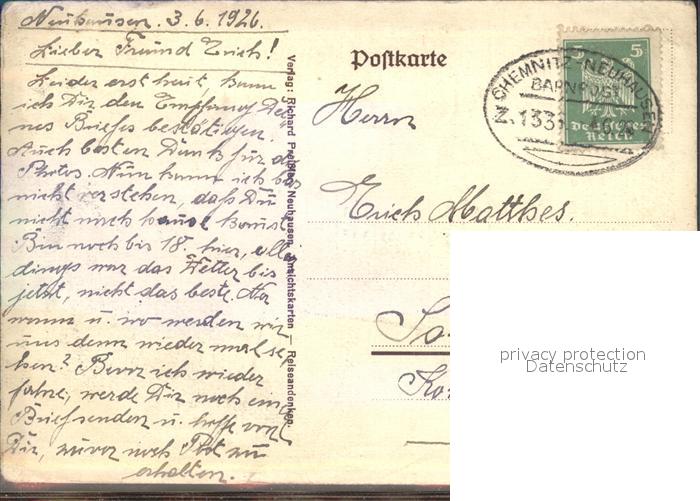 Neuhausen. 3.6.1926.
Lieber Freund Erich!
Leider erst heut, kann
ich Dir den Empfang Dei-
nes Briefes bestätigen.
Auch besten Dank für die
Photos. Nun kann ich bos
nicht verstehen, daß Du
nicht nach hause kannst.
Bin noch bis 18. hier, aller
dings war das Wetter bis
jetzt, nicht das beste. Na
wann u. wo werden wir
uns denn wieder mal se-
hen? Bevor ich wieder
fahre, werde Dir noch ein
Brief senden u. hoffe von
Dir, zuvor noch Post zu
erhalten.
Verlag: Richard Neuhausen. Ansichtskarten — Reiseandenken.
Postkarte
5 5
Deutsches
Reich
CHEMNITZ-NEUHAUSEN
BAHNPOST
Z.1331
Herrn
Erich Matthes.
privacy protection
Datenschutz